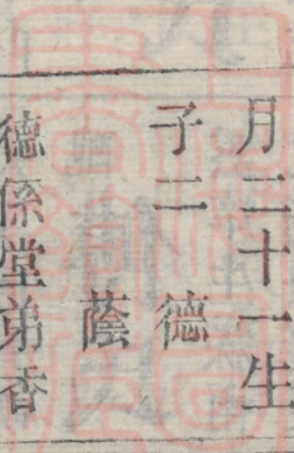 月二十一生
子二　德
蔭
德係堂弟香